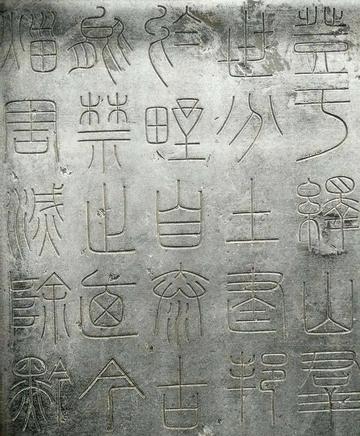 登于繹山群
世分土建邦
於野自泰古
能禁止迺今
災害滅除黔